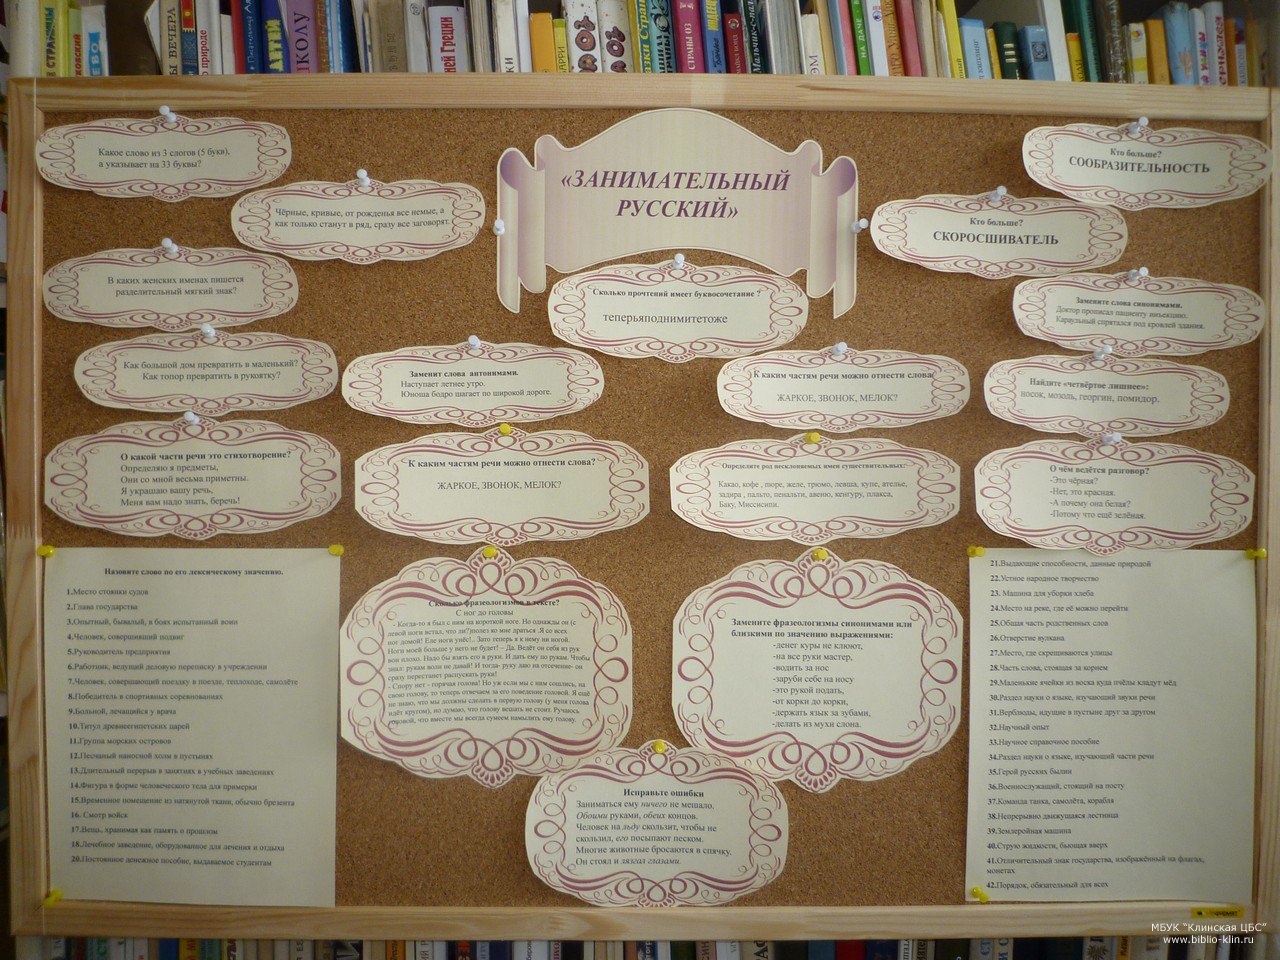 «ЗАНИМАТЕЛЬНЫЙ
РУССКИЙ»
Какое слово из 3 слогов (5 букв),
а указывает на 33 буквы?
Чёрные, кривые, от рожденья все немые, а
как только станут в ряд, сразу все заговорят.
В каких женских именах пишется
разделительный мягкий знак?
Как большой дом превратить в маленький?
Как топор превратить в рукоятку?
О какой части речи это стихотворение?
Определяю я предметы,
Они со мной весьма приметны.
Я украшаю вашу речь,
Меня вам надо знать, беречь!
Заменит слова антонимами.
Наступает летнее утро.
Юноша бодро шагает по широкой дороге.
Сколько прочтений имеет буквосочетание ?
теперьяподнимитетоже
К каким частям речи можно отнести слова
ЖАРКОЕ, ЗВОНОК, МЕЛОК?
К каким частям речи можно отнести слова?
ЖАРКОЕ, ЗВОНОК, МЕЛОК?
Определите род несклоняемых имен существительных:
Какао, кофе , пюре, желе, трюмо, левша, купе, ателье,
задира , пальто, пенальти, авеню, кенгуру, плакса,
Баку, Миссисипи.
Кто больше?
СООБРАЗИТЕЛЬНОСТЬ
Кто больше?
СКОРОСШИВАТЕЛЬ
Замените слова синонимами.
Доктор прописал пациенту инъекцию.
Караульный спрятался под кровлей здания.
Найдите «четвёртое лишнее»:
носок, мозоль, георгин, помидор.
О чём ведётся разговор?
-Это чёрная?
-Нет, это красная.
-А почему она белая?
-Потому что ещё зелёная.
Назовите слово по его лексическому значению.
1.Место стоянки судов
2.Глава государства
3.Опытный, бывалый, в боях испытанный воин
4.Человек, совершивший подвиг
5.Руководитель предприятия
6.Работник, ведущий деловую переписку в учреждении
7.Человек, совершающий поездку в поезде, теплоходе, самолёте
8.Победитель в спортивных соревнованиях
9.Больной, лечащийся у врача
10.Титул древнеегипетских царей
11.Группа морских островов
12.Песчаный наносной холм в пустынях
13.Длительный перерыв в занятиях в учебных заведениях
14.Фигура в форме человеческого тела для примерки
15.Временное помещение из натянутой ткани, обычно брезента
16. Смотр войск
17.Вещь, хранимая как память о прошлом
18.Лечебное заведение, оборудованное для лечения и отдыха
20.Постоянное денежное пособие, выдаваемое студентам
Сколько фразеологизмов в тексте?
С ног до головы
- Когда-то я был с ним на короткой ноге. Но однажды он (с
левой ноги встал, что ли?)полез ко мне драться .Я со всех
ног домой! Еле ноги унёс!.. Зато теперь я к нему ни ногой.
Ноги моей больше у него не будет! – Да. Ведёт он себя из рук
вон плохо. Надо бы взять его в руки. И дать ему по рукам. Чтобы
знал: рукам воли не давай! И тогда- руку даю на отсечение- он
сразу перестанет распускать руки!
- Спору нет - горячая голова! Но уж если мы с ним сошлись, на
свою голову, то теперь отвечаем за его поведение головой. Я ещё
не знаю, что мы должны сделать в первую голову (у меня голова
идёт кругом), но думаю, что голову вешать не стоит. Ручаюсь
головой, что вместе мы всегда сумеем намылить ему голову.
Замените фразеологизмы синонимами или
близкими по значению выражениями:
-денег куры не клюют,
-на все руки мастер,
-водить за нос
-заруби себе на носу
-это рукой подать,
-от корки до корки,
-держать язык за зубами,
-делать из мухи слона.
Исправьте ошибки
Заниматься ему ничего не мешало.
Обоими руками, обеих концов.
Человек на льду скользит, чтобы не
скользил, его посыпают песком.
Многие животные бросаются в спячку.
Он стоял и лязгал глазами.
21.Выдающие способности, данные природой
22.Устное народное творчество
23. Машина для уборки хлеба
24.Место на реке, где её можно перейти
25.Общая часть родственных слов
26.Отверстие вулкана
27.Место, где скрещиваются улицы
28.Часть слова, стоящая за корнем
29.Маленькие ячейки из воска куда пчёлы кладут мёд
30.Раздел науки о языке, изучающий звуки речи
31.Верблюды, идущие в пустыне друг за другом
32.Научный опыт
33.Научное справочное пособие
34.Раздел науки о языке, изучающий части речи
35.Герой русских былин
36.Военнослужащий, стоящий на посту
37.Команда танка, самолёта, корабля
38.Непрерывно движущаяся лестница
39.Землеройная машина
40.Струю жидкости, бьющая вверх
41.Отличительный знак государства, изображённый на флагах,
монетах
42.Порядок, обязательный для всех
МБУК "Клинская ЦБС"
www.biblio-klin.ru